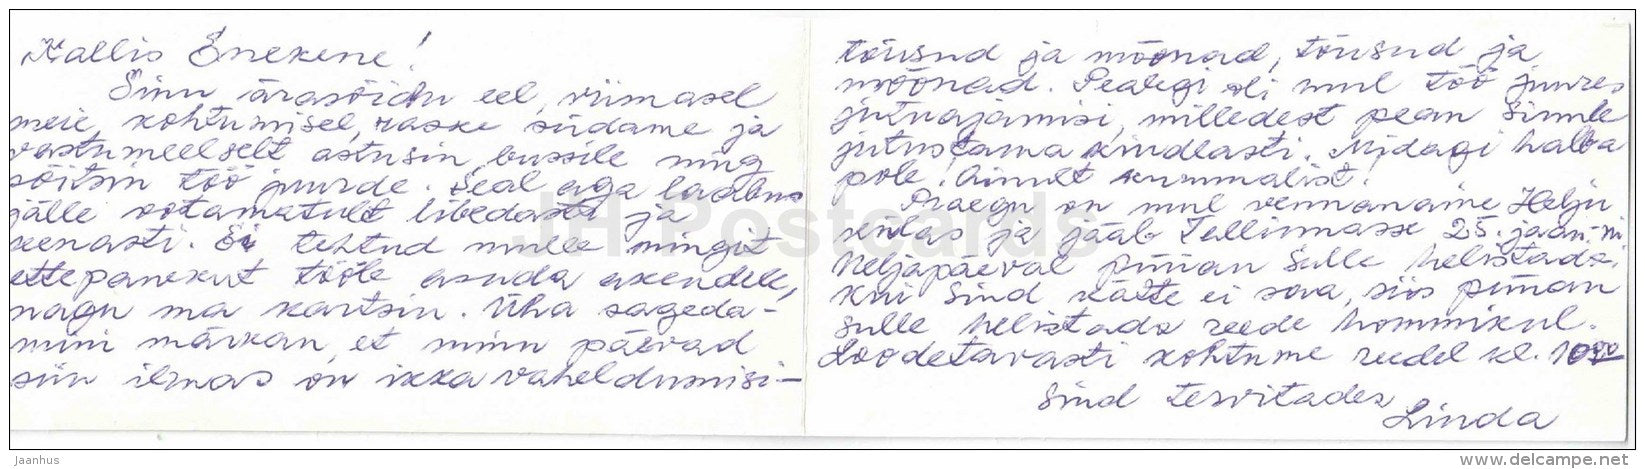 Kallis Enekene!
Sinu ärasõidu eel, viimasel
meie kohtumisel, raske südame ja
vastumeelselt astusin bussile ning
sõitsin töö juurde. Seal aga laabus
jälle ootamatult libedasti ja
kenasti. Ei tehtud mulle mingit
ettepanekut tööle asuda akendele,
nagu ma kartsin. Üha sageda-
mini märkan, et minu päevad
siin ilmas on ikka vaheldumisi-
tõusud ja mõõnad, tõusud ja
mõõnad. Pealegi oli mul töö juures
jutuajamisi, milledest pean Sinule
jutustama kindlasti. Midagi halba
pole! Ainult kummalist!
Praegu on mul vennanaine Helju
külas ja jääb Tallinnasse 25. jaan-ni
Neljapäeval püüan Sulle helistada.
Kui Sind kätte ei saa, siis püüan
Sulle helistada reede hommikul.
Loodetavasti kohtume reedel kl. 10.00
Sind tervitades
Linda
JH Postcards
jaanhus
www.delcampe.net